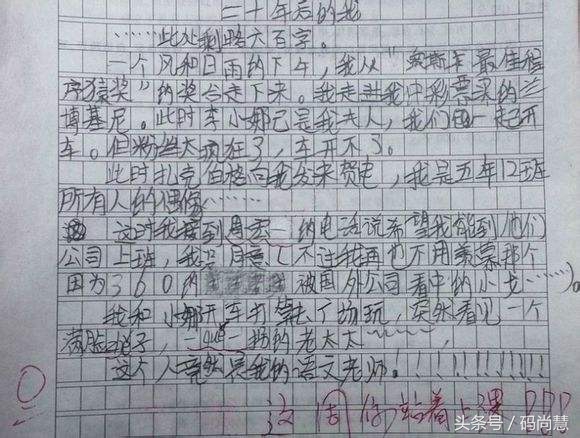 二十年后的我
……此处剩略六百字。
一个风和日雨的下午,我从"奥斯卡最佳程
序猿奖"的奖台走下来。我走进我中彩票买的兰
博基尼。此时李小娜已是我夫人,我们一起开
车。但粉丝太疯狂了,车开不了。
此时扎克伯格向我发来贺电,我是五年12班
所有人的偶像……
这时我接到周宏一的电话说希望我能到他们
公司上班,我只同意了不过我再也不用羡慕那个
因为360的 被国外公司看中的小龙……
我和小娜开车打禁去广场玩,突然看见一个
满脸 子,一 一拐的老太太~~~~~,
这个人竟然是我的语文老师!!!!!!!!!!!
这周你站着上课!!!
头条号/码尚慧